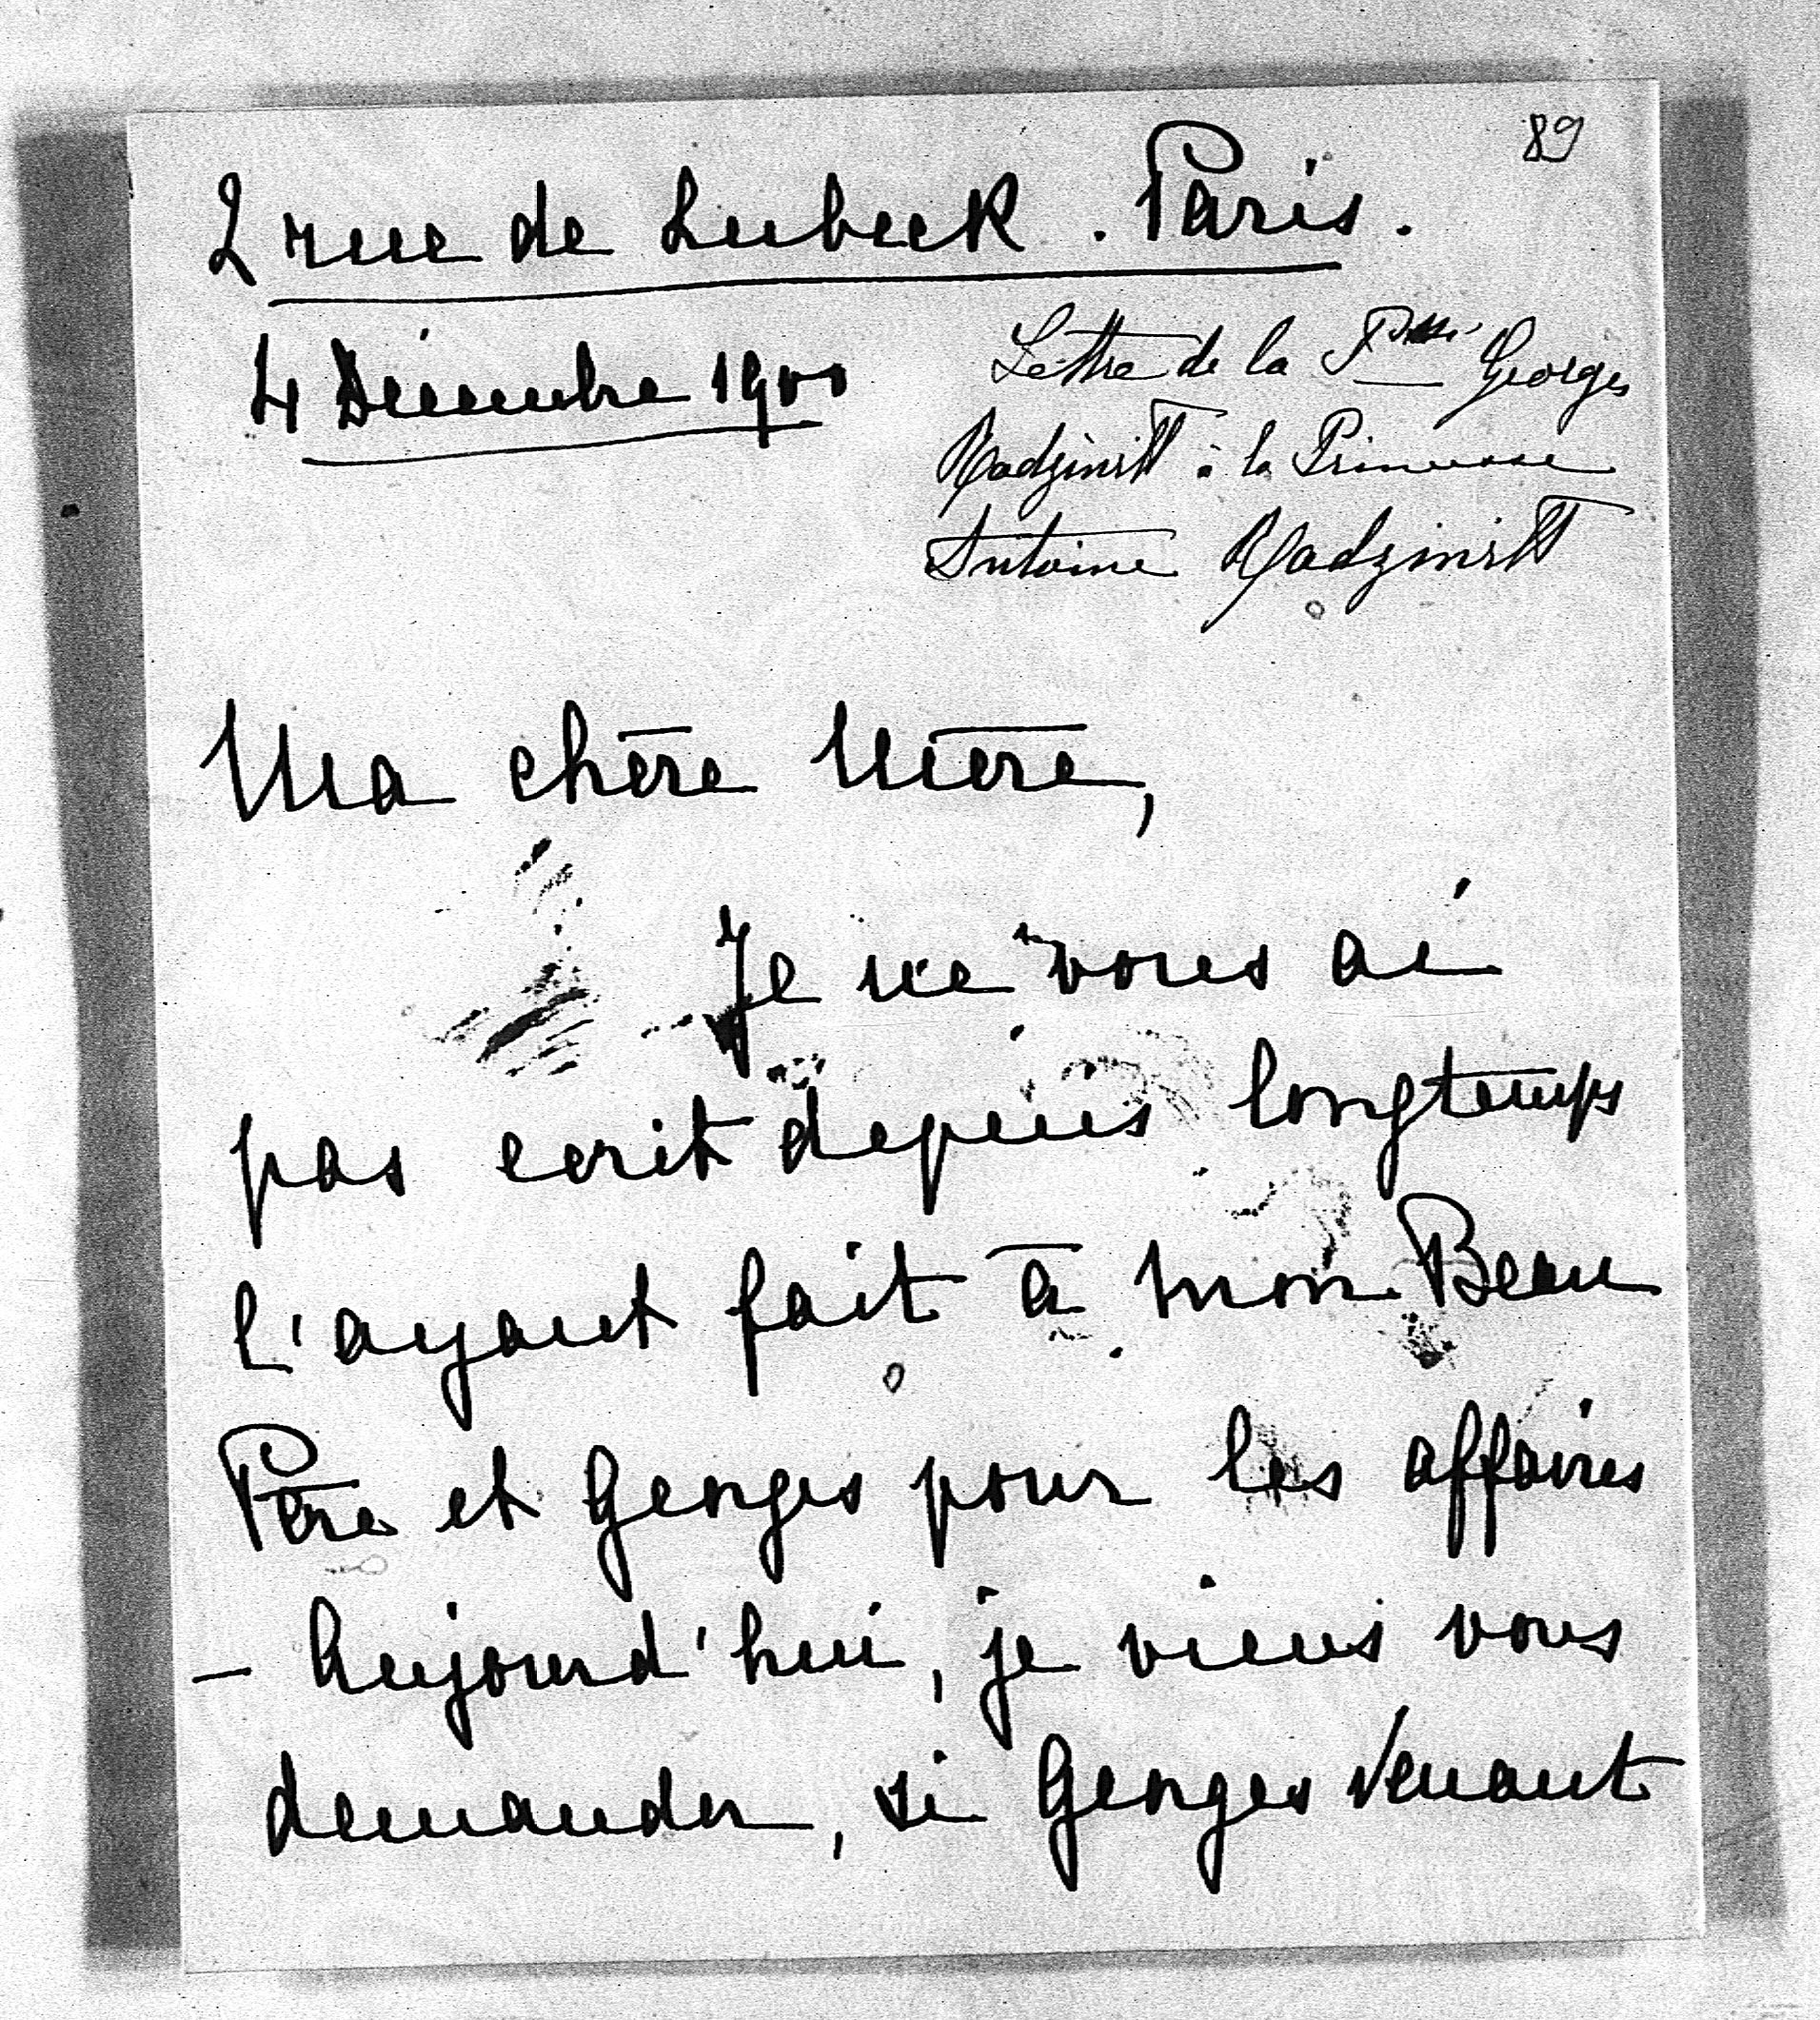 89
2 rue de Lubeck. Paris.
4 Décembre 1900
Lettre de la Psse Georges
Radziwill à la Princesse
Antoine Radziwill
Ma chère Mère,
Je ne vous ai
pas ecrit depuis longtemps
l'ayant fait à mon Beau
Père et Georges pour les affaires
— Aujourd'hui, je viens vous
demander, si Georges venant